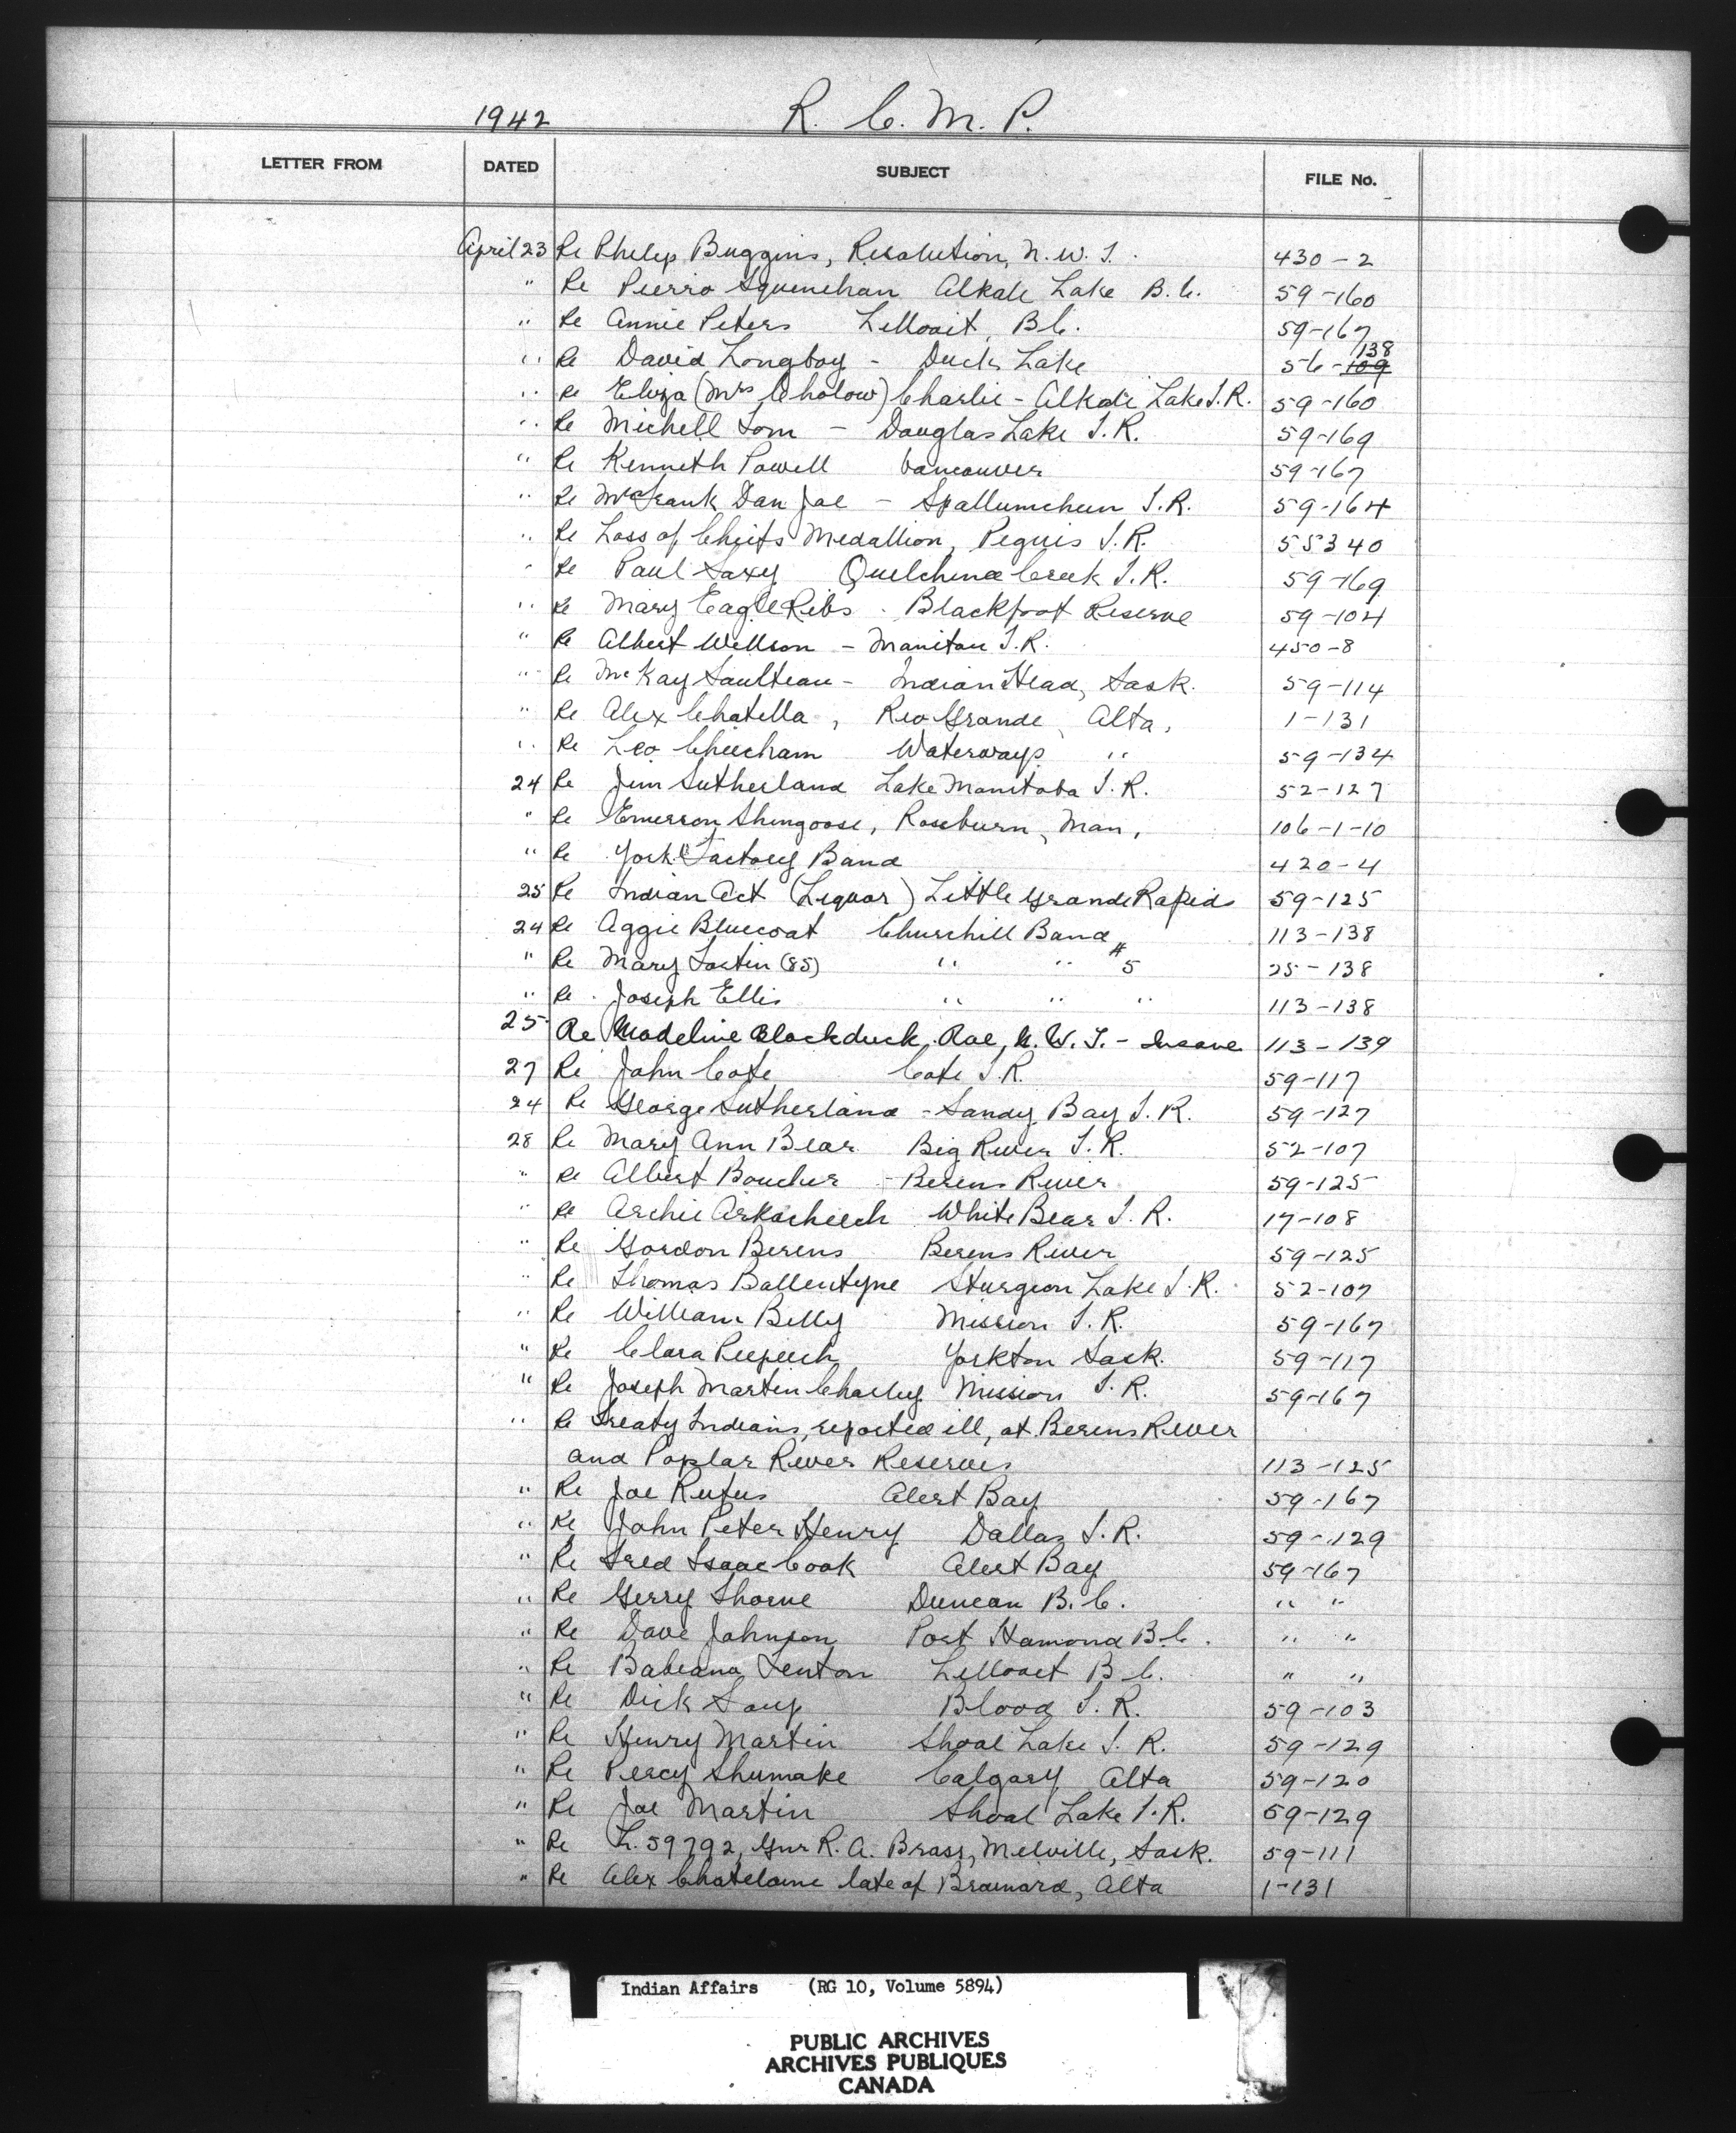 1942 R. C. M. P.
LETTER FROM DATED SUBJECT FILE No.
April 23 Re Philip Buggins, Resolution, N.W.T. 430-2
" Re Pierro Squinchan Alkali Lake B.C. 59-160
" Re Annie Peters Lillooit, B.C. 59-167
" Re David Longboy - Duck Lake 56-109 138
" Re Eliza (Mrs Cholow) Charlie - Alkali Lake I.R. 59-160
" Re Michell Tom - Douglas Lake I.R. 59-169
" Re Kenneth Powell Vancouver 59-167
" Re Frank Dan Joe - Spallumcheen I.R. 59-164
" Re Loss of Chiefs Medallion, Peguis I.R. 55340
" Re Paul Saxy Quilchena Creek I.R. 59-169
" Re Mary Eagle Ribs. Blackfoot Reserve 59-104
" Re Albert Wellson - Manitou I.R. 450-8
" Re McKay Saulteau - Indian Head, Sask. 59-114
" Re Alex Chatella, Rio Grande, Alta, 1-131
" Re Leo Cheecham Waterways " 59-134
24 Re Jim Sutherland Lake Manitoba I.R. 52-127
" Re Emerson Shingoose, Rossburn, Man, 106-1-10
" Re York Factory Band 420-4
25 Re Indian Act (Liquor) Little Grande Rapids 59-125
24 Re Aggie Bluecoat Churchill Band 113-138
" Re Mary (85) " " #5 25-138
" Re Joseph Ellis " " " 113-138
25 Re Madeline Blackduck, Rae, N.W.T. - Insane 113-139
27 Re John Cote Cote I.R. 59-117
24 Re George Sutherland - Sandy Bay I.R. 59-127
28 Re Mary Ann Bear Big River I.R. 52-107
" Re Albert Boucher - Berens River 59-125
" Re Archie White Bear I.R. 17-108
" Re Gordon Berens Berens River 59-125
" Re Thomas Ballentyne Sturgeon Lake I.R. 52-107
" Re William Billy Mission I.R. 59-167
" Re Clara Peepeech Yorkton Sask. 59-117
" Re Joseph Martin Charley Mission I.R. 59-167
" Re Treaty Indians, reported ill, at Berens River
and Poplar River Reserves 113-125
" Re Joe Rufus Alert Bay 59-167
" Re John Peter Henry Dallas I.R. 59-129
" Re Fred Isaac Cook Alert Bay 59-167
" Re Gerry Thorne Duncan B.C. " "
" Re Dave Johnson Port Hamond B.C. " "
" Re Babeana Fenton Lillooet B.C. " "
" Re Dick Soup Blood I.R. 59-103
" Re Henry Martin Shoal Lake I.R. 59-129
" Re Percy Shumake Calgary Alta 59-120
" Re Joe Martin Shoal Lake I.R. 59-129
" Re L. 59792, Gnr R.A. Brass, Melville, Sask. 59-111
" Re Alex Chatelaine late of Brainard, Alta 1-131
Indian Affairs (RG 10, Volume 5894)
PUBLIC ARCHIVES
ARCHIVES PUBLIQUES
CANADA